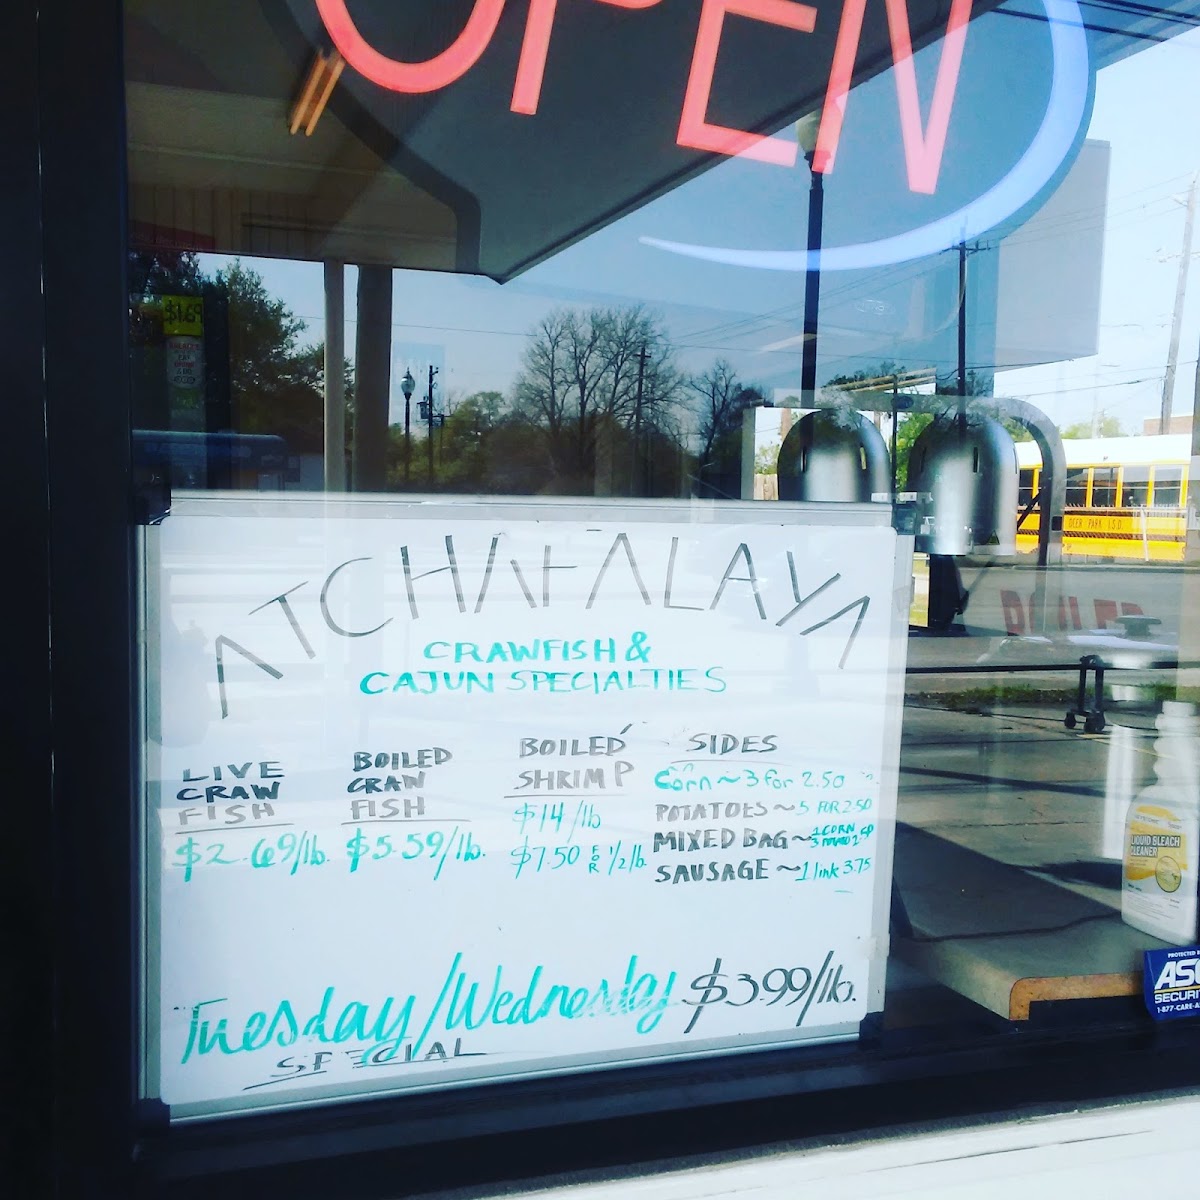 OPEN
$1.69
DEER PARK I.S.D.
ATCHAFALAYA
CRAWFISH &
CAJUN SPECIALTIES
LIVE
CRAW
FISH
$2.69/lb.
BOILED
CRAW
FISH
$5.59/lb.
BOILED
SHRIMP
$14/lb
$7.50 FOR 1/2/lb.
SIDES
Corn~3 for 2.50
POTATOES~5 FOR 2.50
MIXED BAG~1 CORN
2.50
SAUSAGE~1 link 3.75
Tuesday/Wednesday $3.99/lb.
SPECIAL
BOILED
LIQUID BLEACH
CLEANER
PROTECTED
SECURI
1-877-CARE-A